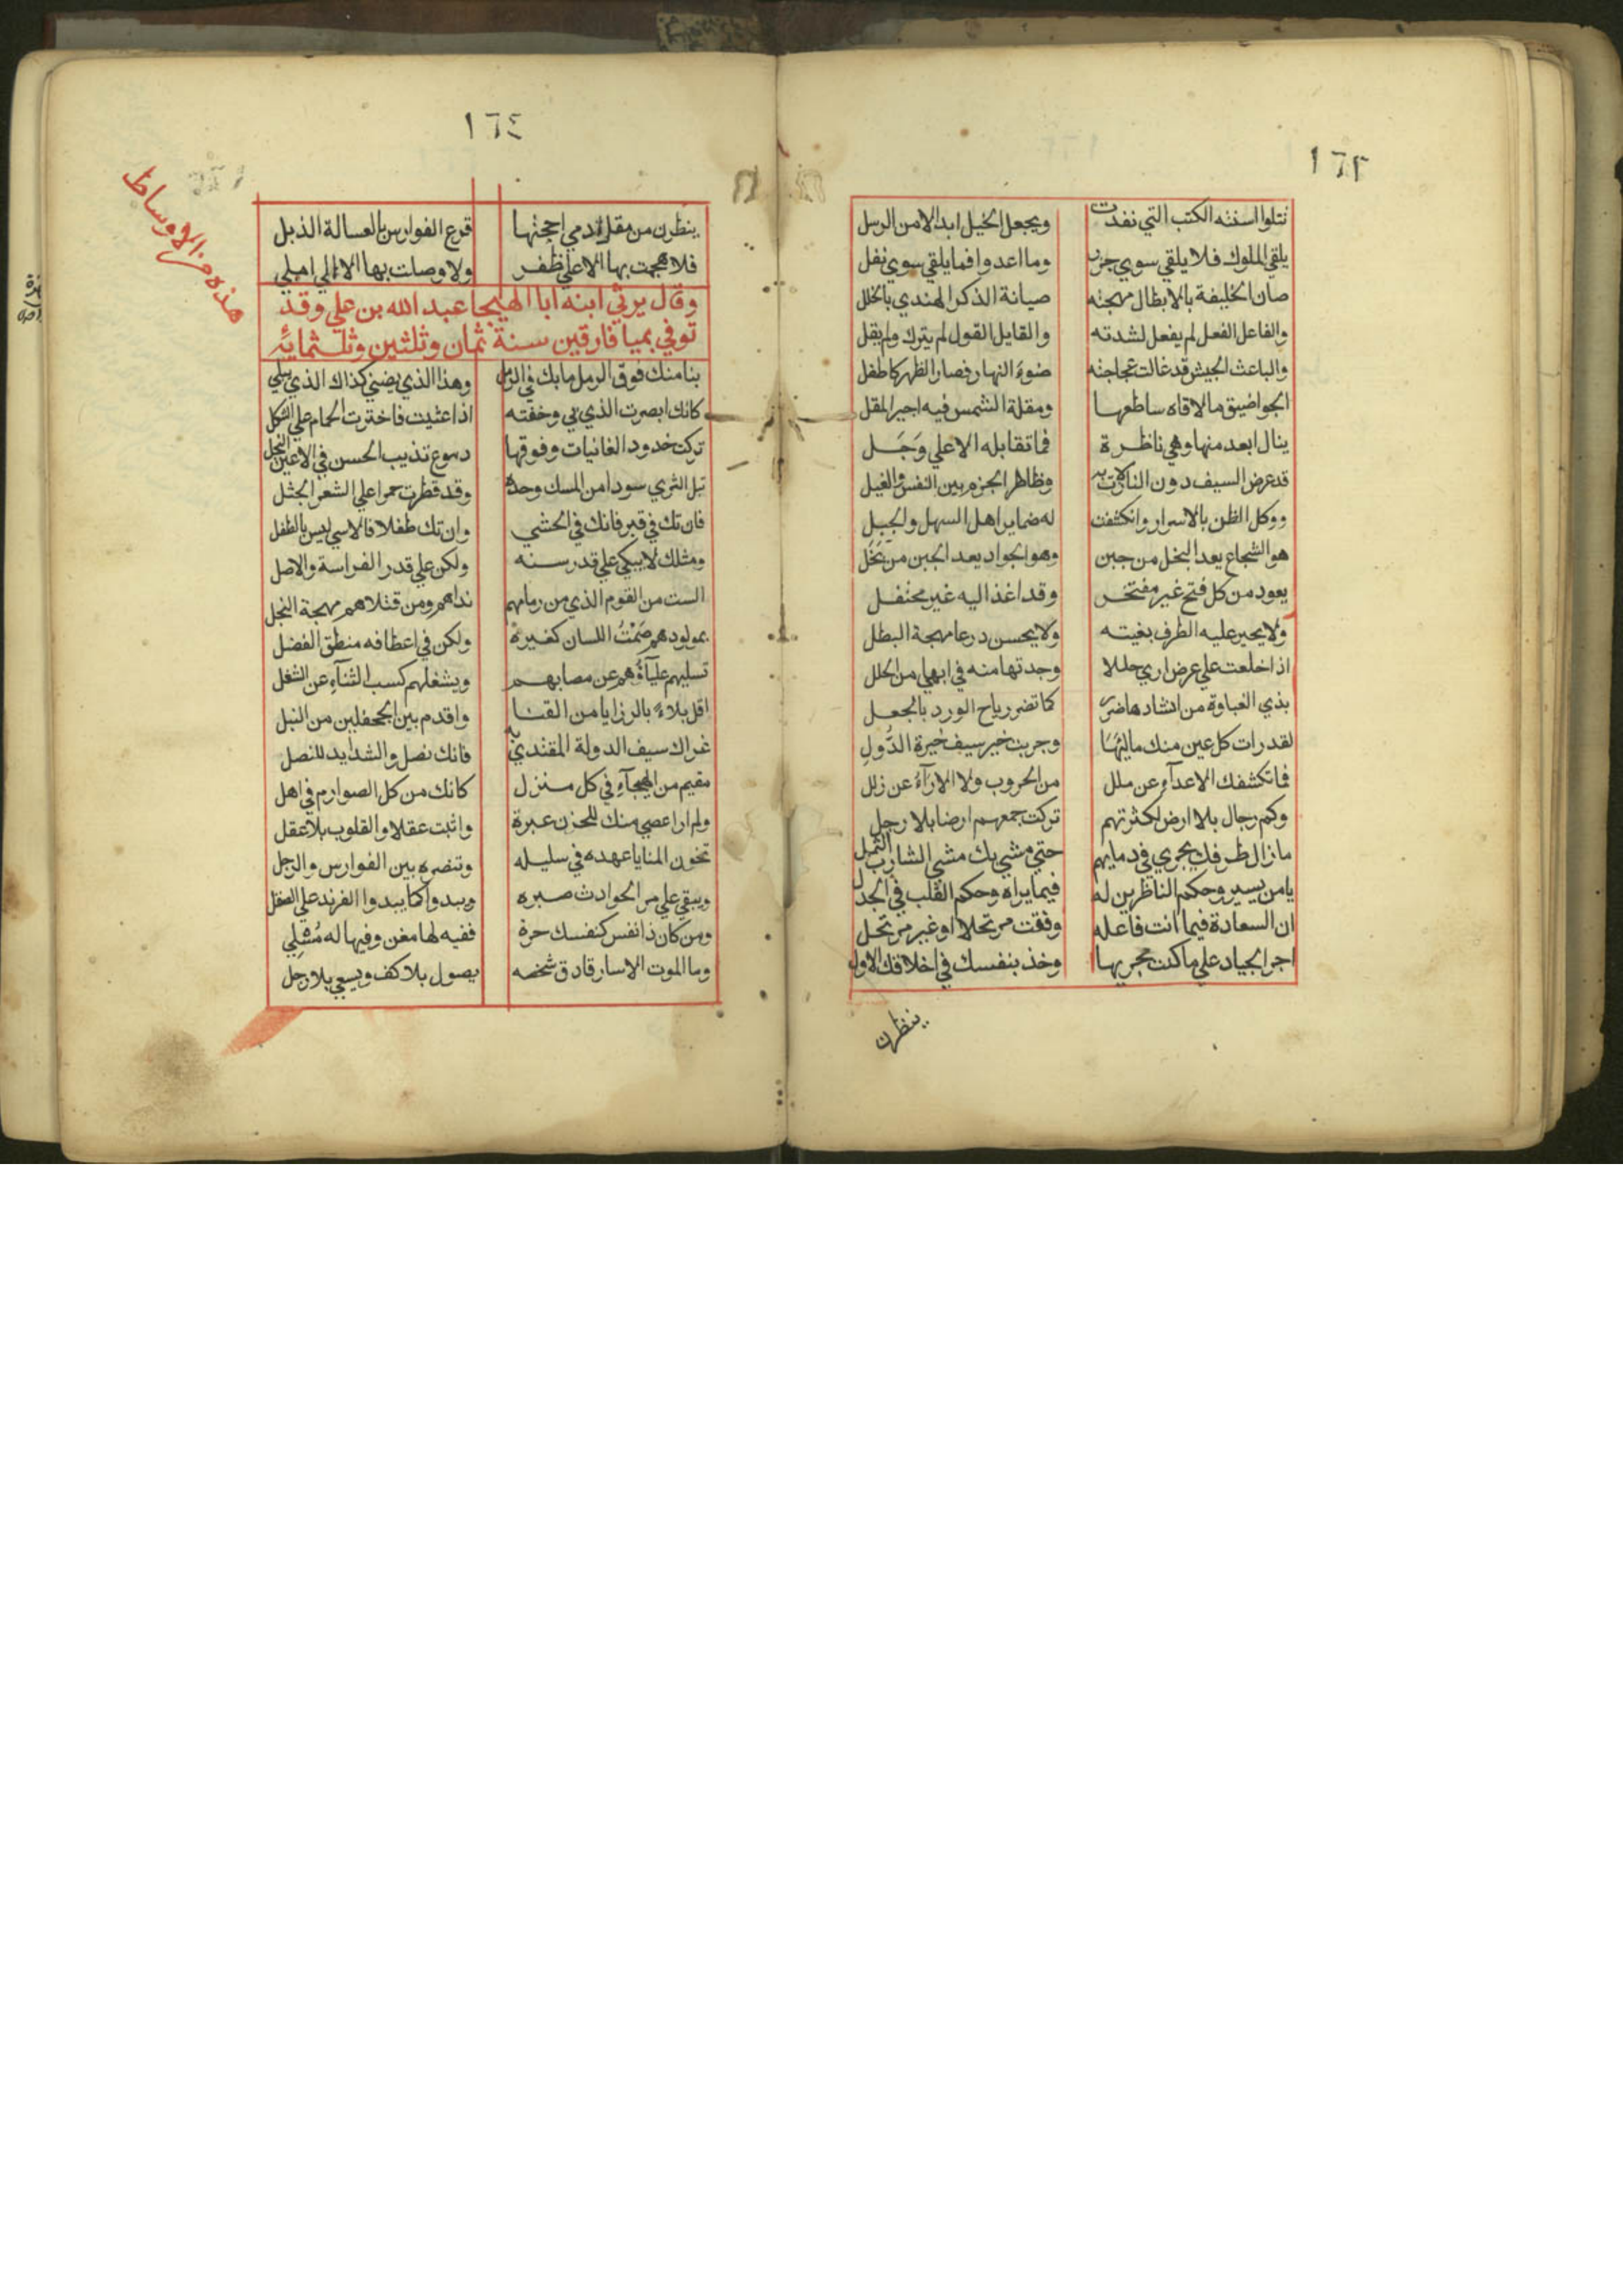 ١٦٣
تتلوا اسنته الكتب التي نفذت ويجعل الخيل ابدالا من الرسل
يلقي الملوك فلا يلقي سوي جزر وما اعدوا فما يلقي سوي نفل
صان الخليفة بالابطال مهجته صيانة الذكر الهندي بالخلل
والفاعل الفعل لم يفعل لشدته والقايل القول لم يترك ولم يقل
والباعث الجيش قد غالت عجاجته ضوء النهار فصار الظهر كاطفل
الجو اضيق ما لاقاه ساطعها ومقلة الشمس فيه احير المقل
ينال ابعد منها وهي ناظرة فما تقابله الا علي وَجَل
قد عرض السيف دون النازلات به وظاهر الحزم بين النفس والغيل
ووكل الظن بالاسرار وانكشفت له ضماير اهل السهل والجبل
هو الشجاع يعد البخل من جبن وهو الجواد يعد الجبن من بَخَل
يعود من كل فتح غير مفتخر وقد اغذ اليه غير محتفل
ولا يجير عليه الطرف بغيته ولا يحسن درعا مهجة البطل
اذا خلعت علي عرض اري حللا وجدتها منه في ابهي من الحلل
بذي الغباوة من انشادها ضرر كما تضر رياح الورد بالجعل
لقد رات كل عين منك ماليَها وجربت خير سيف خيرة الدُّولِ
فما تكشفك الاعدآء عن ملل من الحروب ولا الارآءُ عن زلل
وكم رجال بلا ارض لكثرتهم تركت جمعهم ارضا بلا رجل
ما زال طرفك يجري في دمايهم حتي مشي بك مشي الشارب الثمل
يا من يسير وحكم الناظرين له فيما يراه وحكم القلب في الجدل
ان السعادة فيما انت فاعله وفقت مرتحلا او غير مرتحل
اجر الجياد علي ما كنت مجريها وخذ بنفسك في اخلاقك الاول
ينظرن
١٦٤
هذه من الاوساط
ينظرن من مقل ادمي احجتها قرع الفوارس بالعسالة الذبل
فلا هجمت بها الا علي ظفر ولا وصلت بها الا الي املي
وقال يرثي ابنه ابا الهيجا عبد الله بن علي وقد
توفي بميا فارقين سنة ثمان وثلثين وثلثمايه
بنا منك فوق الرمل ما بك في الرمل وهذا الذي يضني كذاك الذي يبلي
كانك ابصرت الذي بي وخفته اذا عشت فاخترت الحمام علي الثكل
تركت خدود الغانيات وفوقها دموع تذيب الحسن في الاعين النجل
تبل الثري سودا من المسك وحده وقد قطرت حمرا علي الشعر الجثل
فان تك في قبر فانك في الحشي وان تك طفلا فالاسي ليس بالطفل
ومثلك لا يبكي علي قدر سنه ولكن علي قدر الفراسة والاصل
الست من القوم الذي من رماحهم نداهم ومن قتلاهم مهجة البخل
بمولودهم صَمْتُ اللسان كغيره ولكن في اعطافه منطق الفضل
تسليهم عليآؤُهم عن مصابهم ويشغلهم كسب الثنآءِ عن الشغل
اقل بلاءً بالرزايا من القنا واقدم بين الجحفلين من النبل
عزاك سيف الدولة المقتدي به فانك نصل والشدايد للنصل
مقيم من الهيجآءِ في كل منزل كانك من كل الصوارم في اهل
ولم ار اعصي منك للحزن عبرة واثبت عقلا والقلوب بلا عقل
تخون المنايا عهده في سليله وتنصره بين الفوارس والرجل
ويبقي علي مر الحوادث صبره ويبدوا كما يبدوا الفرند علي الصقل
ومن كان ذا نفس كنفسك حرة ففيه لها مغن وفيها له مُسْلِي
وما الموت الا سارق دق شخصه يصول بلا كف ويسعي بلا رجل